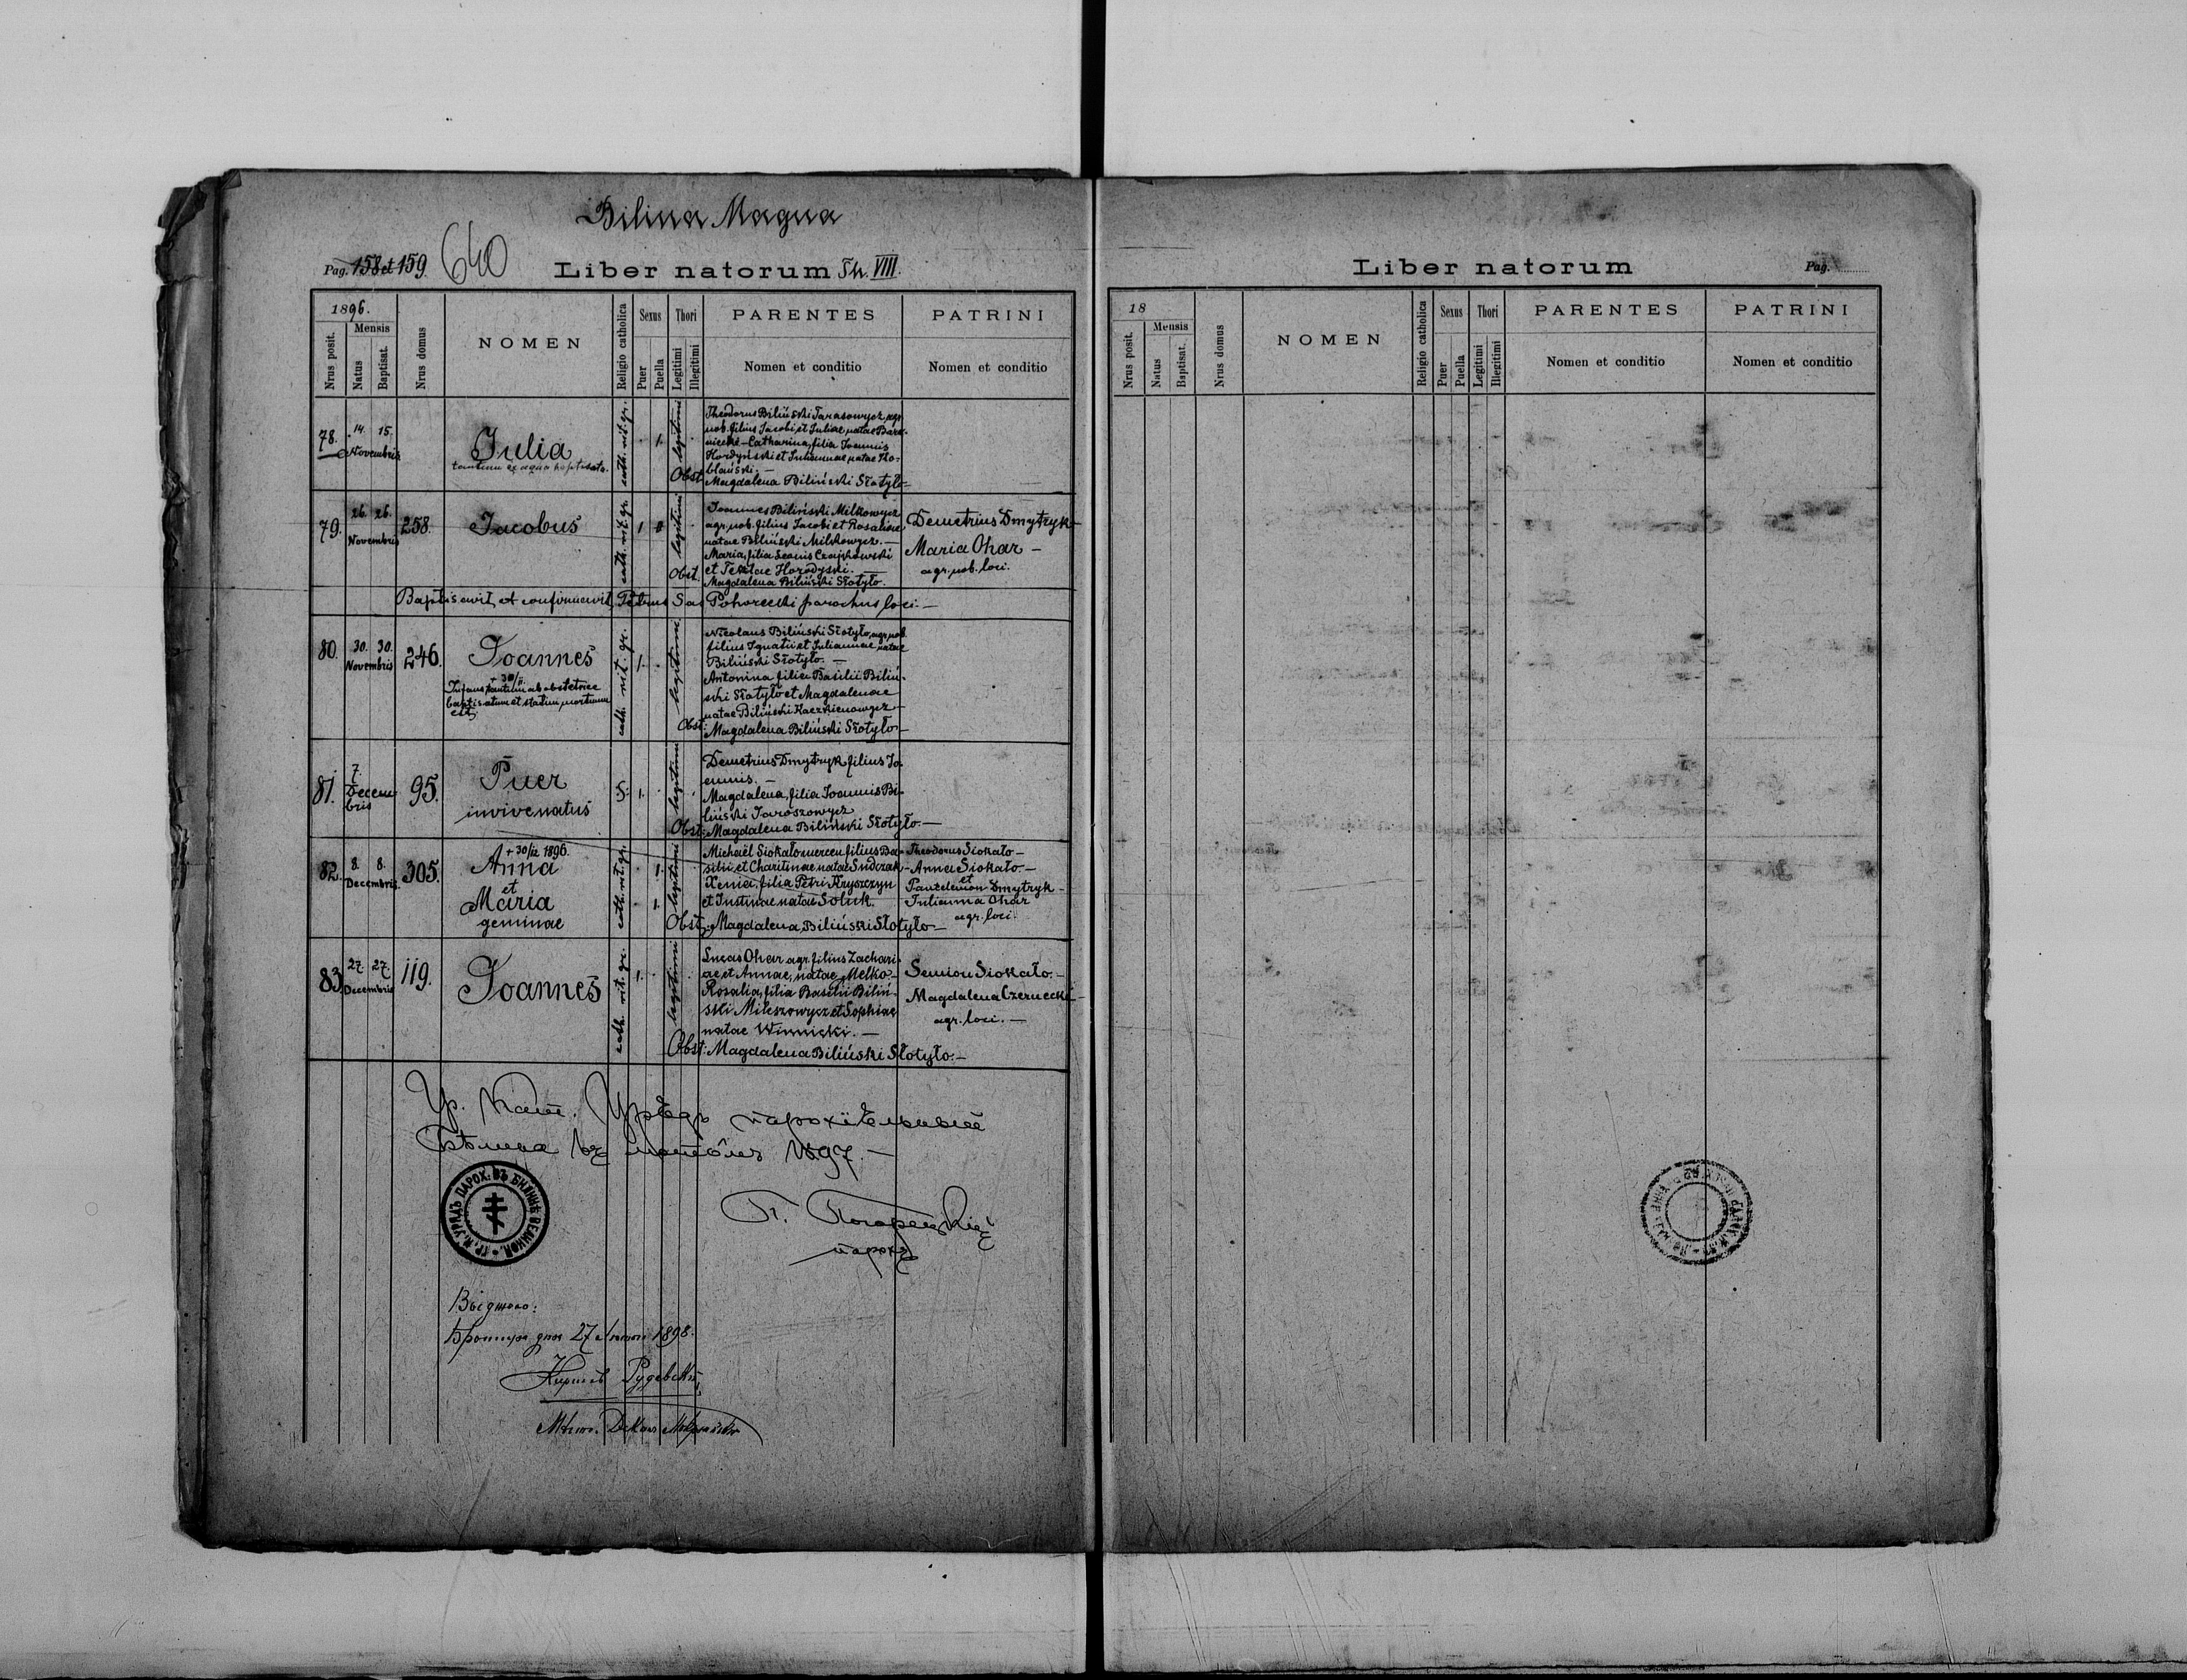 Bilina Magna
Pag. 158 et 159.
640
Liber natorum Th. VIII.
1896.
Nrus posit.
Mensis
Natus
Baptisat.
Nrus domus
NOMEN
Religio catholica
Sexus
Puer
Puella
Thori
Legitimi
Illegitimi
PARENTES
Nomen et conditio
PATRINI
Nomen et conditio
78.
14. 15.
Novembris
Julia
tantum ex aqua baptisata.
cath. rit. gr.
1.
legitimi
Theodorus Biliński Tarasowycz, agr.
nob. filius Jacobi et Juliae, natae
Catharina, filia Joannis
Hordyński et Juliannae natae
Obst. Magdalena Biliński Słotyło
79.
26. 26.
Novembris
258.
Jacobus
cath. rit. gr.
1
legitimi
Joannes Biliński Milkowycz
agr. nob. filius Jacobi et Rosaliae
natae Biliński Milkowycz. —
Maria, filia Leonis Czajkowski
et Teklae Horodyski. —
Obst. Magdalena Biliński Słotyło.
Demetrius Dmytryk
Maria Ohar —
agr. nob. loci.
Baptisavit et confirmavit Petrus Sas Pohorecki parochus loci. —
80.
30. 30.
Novembris
246.
Joannes
Infans tantum ab obstetrice
baptisatum et statim mortuum
est.
cath. rit. gr.
1.
legitimi
Nicolaus Biliński Słotyło, agr. nob.
filius Ignatii et Juliannae natae
Biliński Słotyło. —
Antonina filia Basilii Biliń-
ski Słotyło et Magdalenae
natae Biliński Kaczkienowycz
Obst: Magdalena Biliński Słotyło —
81.
7.
Decem-
bris
95.
Puer
invivenatus
S.
1.
legitimi
Demetrius Dmytryk filius Jo-
annis. —
Magdalena, filia Joannis Bi-
liński Jaroszowycz
Obst: Magdalena Biliński Słotyło. —
82.
8. 8.
Decembris.
305.
+ 30/12 1896.
Anna
et
Maria
geminae
cath. rit. gr.
1.
1.
legitimi
Michaël Siokało mercen filius Ba-
silii et Charitinae natae Sudczak
Xenia, filia Petri Kryszczyn
et Justinae natae Soluk.
Obst: Magdalena Biliński Słotyło —
Theodorus Siokało —
Anna Siokało. —
et
Pantelemon Dmytryk —
Julianna Ohar
agr. loci.
83.
27. 27.
Decembris
119.
Joannes
cath. rit. gr.
1.
legitimi
Lucas Ohar agr. filius Zachari-
ae et Annae, natae Melko —
Rosalia, filia Basilii Biliń-
ski Mikszowycz et Sophiae
natae Winnicki. —
Obst: Magdalena Biliński Słotyło. —
Semion Siokało. —
Magdalena Czernecki —
agr. loci. —
Гр. Кат. Урядъ парохіяльный
1897. —
ГР. К. УРЯДЪ ПАРОХ. ВЪ БИЛИНѢ ВЕЛИКОЙ.
П. Погорецкій
парохъ
Видѣно:
дня 27 1898.
Liber natorum
Pag.
18
Nrus posit.
Mensis
Natus
Baptisat.
Nrus domus
NOMEN
Religio catholica
Sexus
Puer
Puella
Thori
Legitimi
Illegitimi
PARENTES
Nomen et conditio
PATRINI
Nomen et conditio